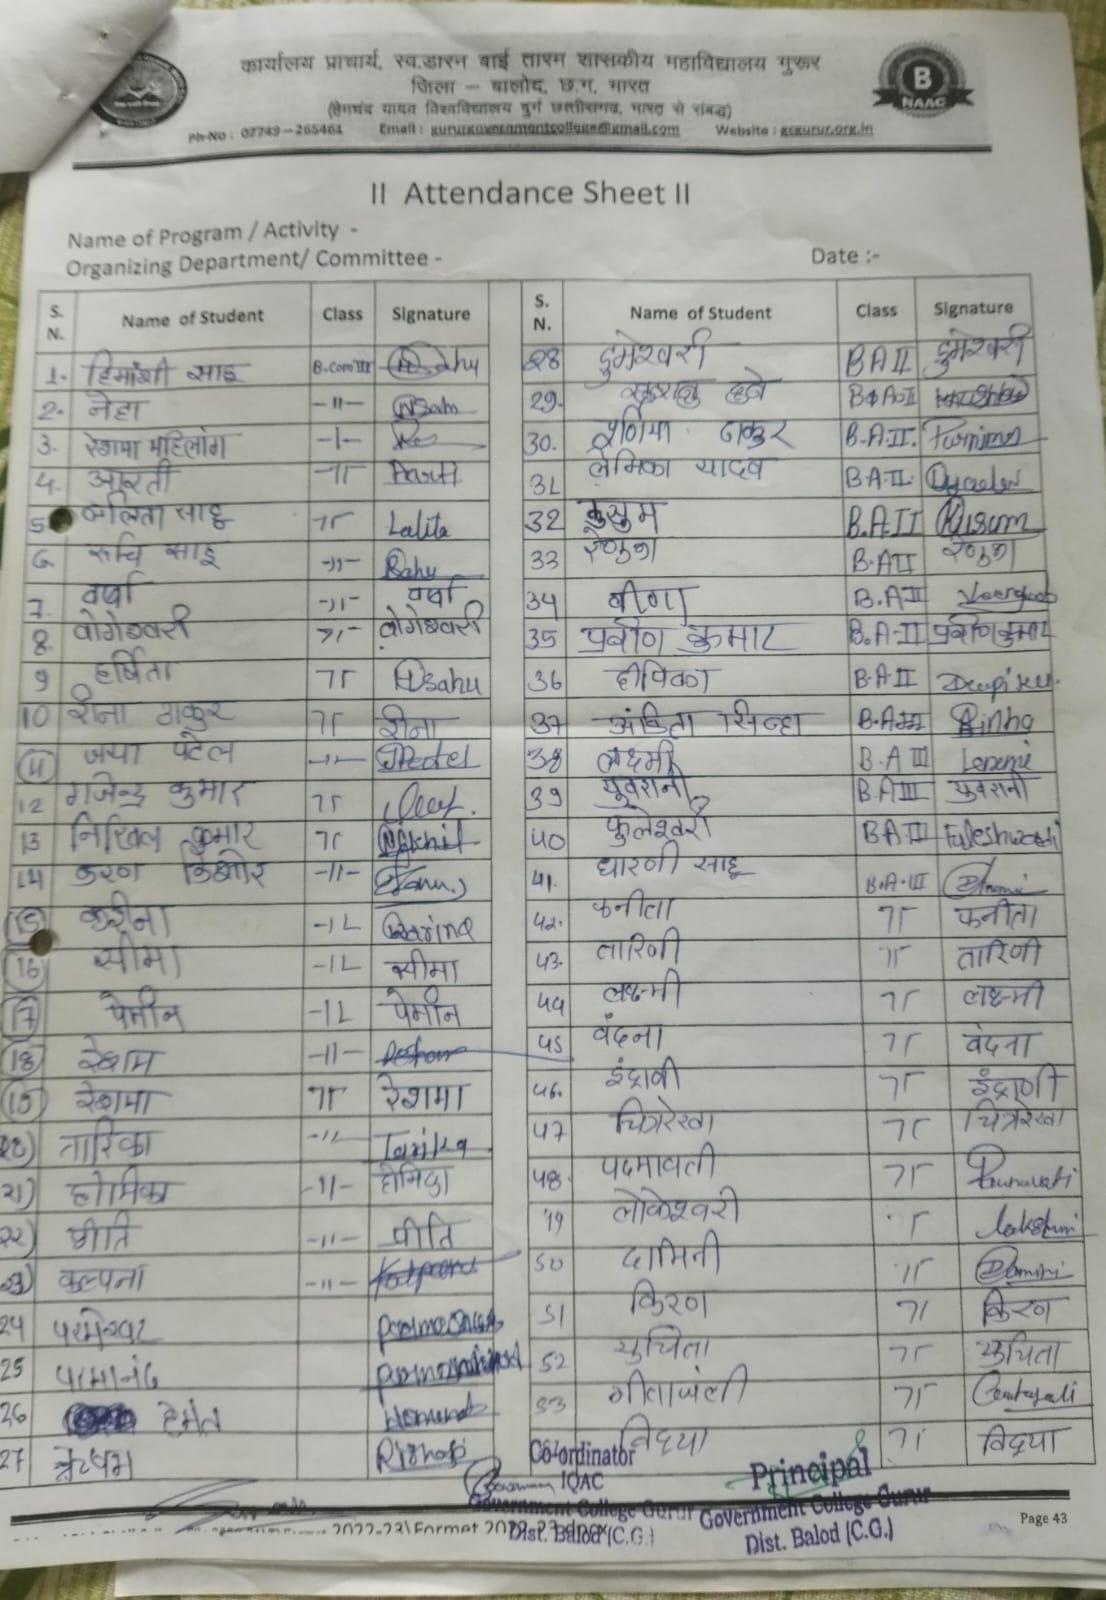 कार्यालय प्राचार्य, स्व.डारन बाई तारम शासकीय महाविद्यालय गुरूर
जिला – बालोद, छ.ग. भारत
(हेमचंद यादव विश्वविद्यालय दुर्ग छत्तीसगढ़, भारत से संबद्ध)
Ph-No : 07749-265464 Email : gururgovernmentcollege@gmail.com Website : gcgurur.org.in
B
NAAC
II Attendance Sheet II
Name of Program / Activity -
Organizing Department/ Committee -
Date :-
S. N. Name of Student Class Signature
1. हिमांशी साहू B.Com III
2. नेहा -11- Nsahu
3. रेशमा महिलांग -1-
4. आरती 71 Aarti
5 ललिता साहू 71 Lalita
6. रुचि साहू -11- Sahu
7. वर्षा -11- वर्षा
8. योगेश्वरी 71- योगेश्वरी
9 हर्षिता 71 Hsahu
10 रीना ठाकुर 71 रीना
11 जया पटेल -11- JPatel
12 गजेन्द्र कुमार 71
13 निखिल कुमार 71 Nikhil
14 करण किशोर -11- Karan
15 करीना -1L Karina
16 सीमा -1L सीमा
17 पेमीन -1L पेमीन
18 रेशम -11-
19 रेशमा 71 रेशमा
20) तारिका -1L Tarika
21) होमिका -11- होमिका
22) प्रीति -11- प्रीति
23) कल्पना -11-
24 परमेश्वर
25 परमानंद
26 हेमंत
27 ऋषभ Rishab
S. N. Name of Student Class Signature
28 डुमेश्वरी BA II डुमेश्वरी
29. BA II
30. पूर्णिमा ठाकुर B.A-II. Purnima
31 लेमिका यादव BA-II. Dyadav
32 कुसुम B.A II Kusum
33 रेणुका B.A II रेणुका
34 वीणा B.A II
35 प्रवीण कुमार B.A-II प्रवीण कुमार
36 दीपिका B.A II Deepika
37 अंकिता सिन्हा B.A Sinha
38 लक्ष्मी B.A III Laxmi
39 युवरानी B.A III युवरानी
40 फुलेश्वरी BA III Fuleshwari
41. धारणी साहू B.A-III
42. फनीता 71 फनीता
43. तारिणी 71 तारिणी
44 लक्ष्मी 71 लक्ष्मी
45 वंदना 71 वंदना
46. इंद्राणी 71 इंद्राणी
47 चित्ररेखा 71 चित्ररेखा
48. पदमावती 71
49 लोकेश्वरी 71
50 दामिनी 71 Damini
51 किरण 71 किरण
52 सुचिता 71 सुचिता
53 गीतांजली 71 Geetanjali
विद्या 71 विद्या
Co-ordinator
IQAC
Government College Gurur
Dist. Balod (C.G.)
Principal
Government College Gurur
Dist. Balod (C.G.)
2022-23\Formet
Page 43